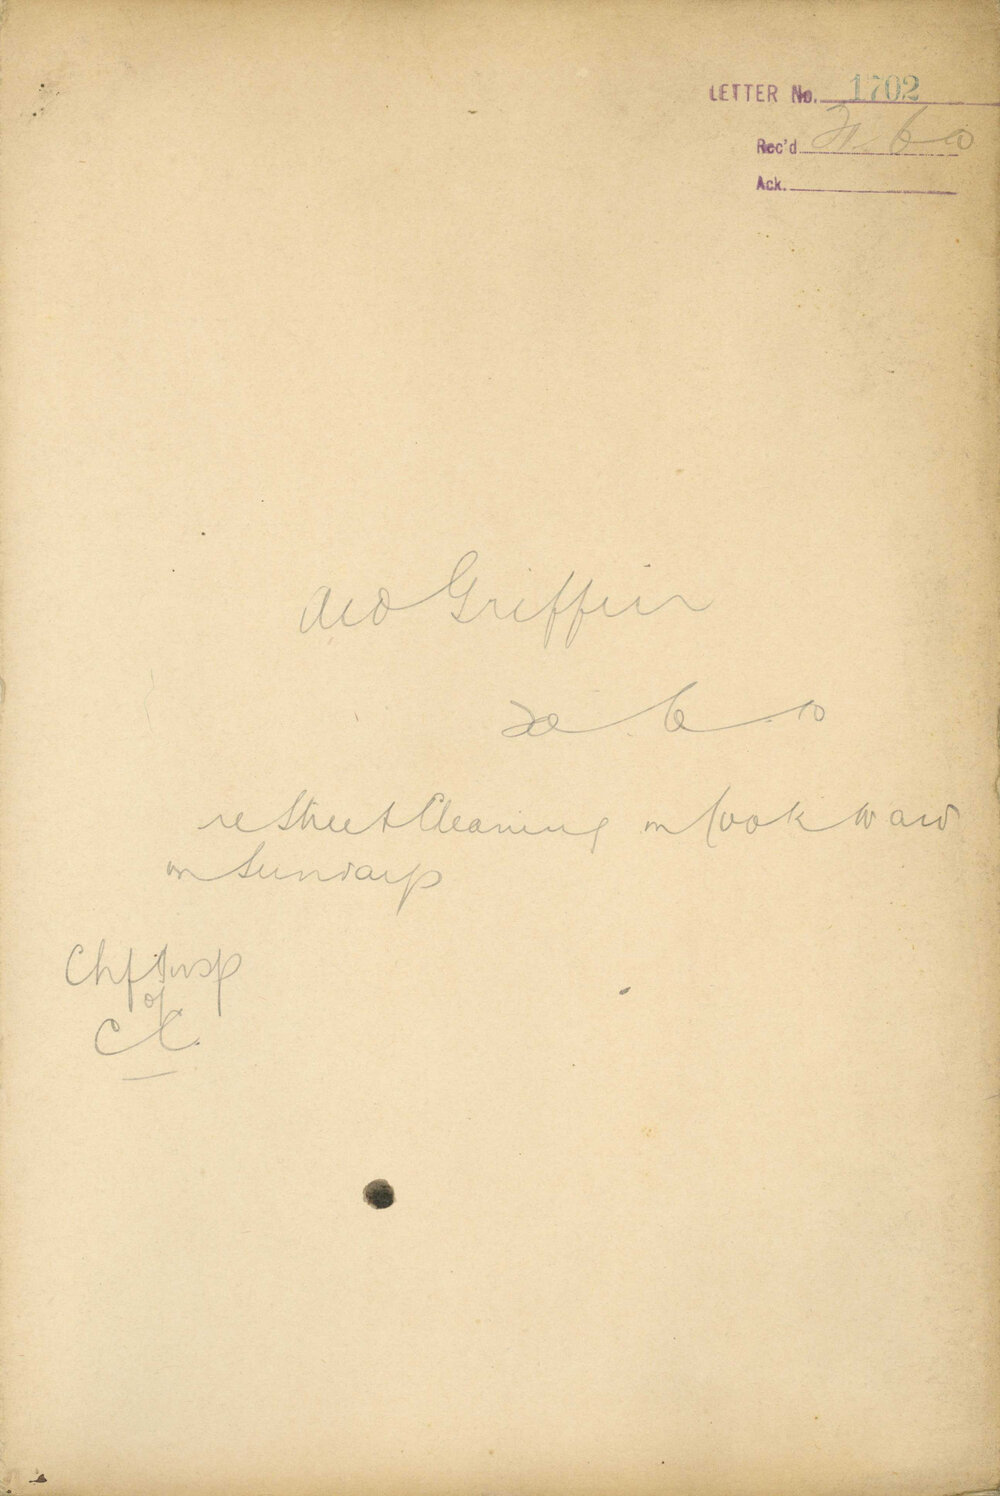 LETTER No. 1702
Rec'd
Ack.
Ald Griffin
re Street Cleaning in Cook Ward
on Sundays
Chf Insp
of